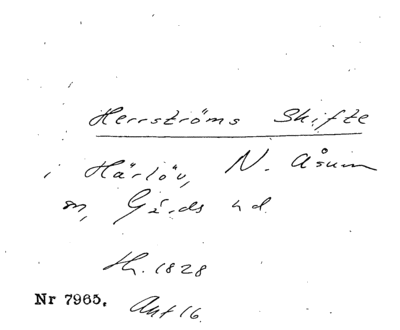 Herrströms Skifte
i Härlöv, N. Åsum
sn, Gärds hd.
Th. 1828
Nr 7965. Ant 16